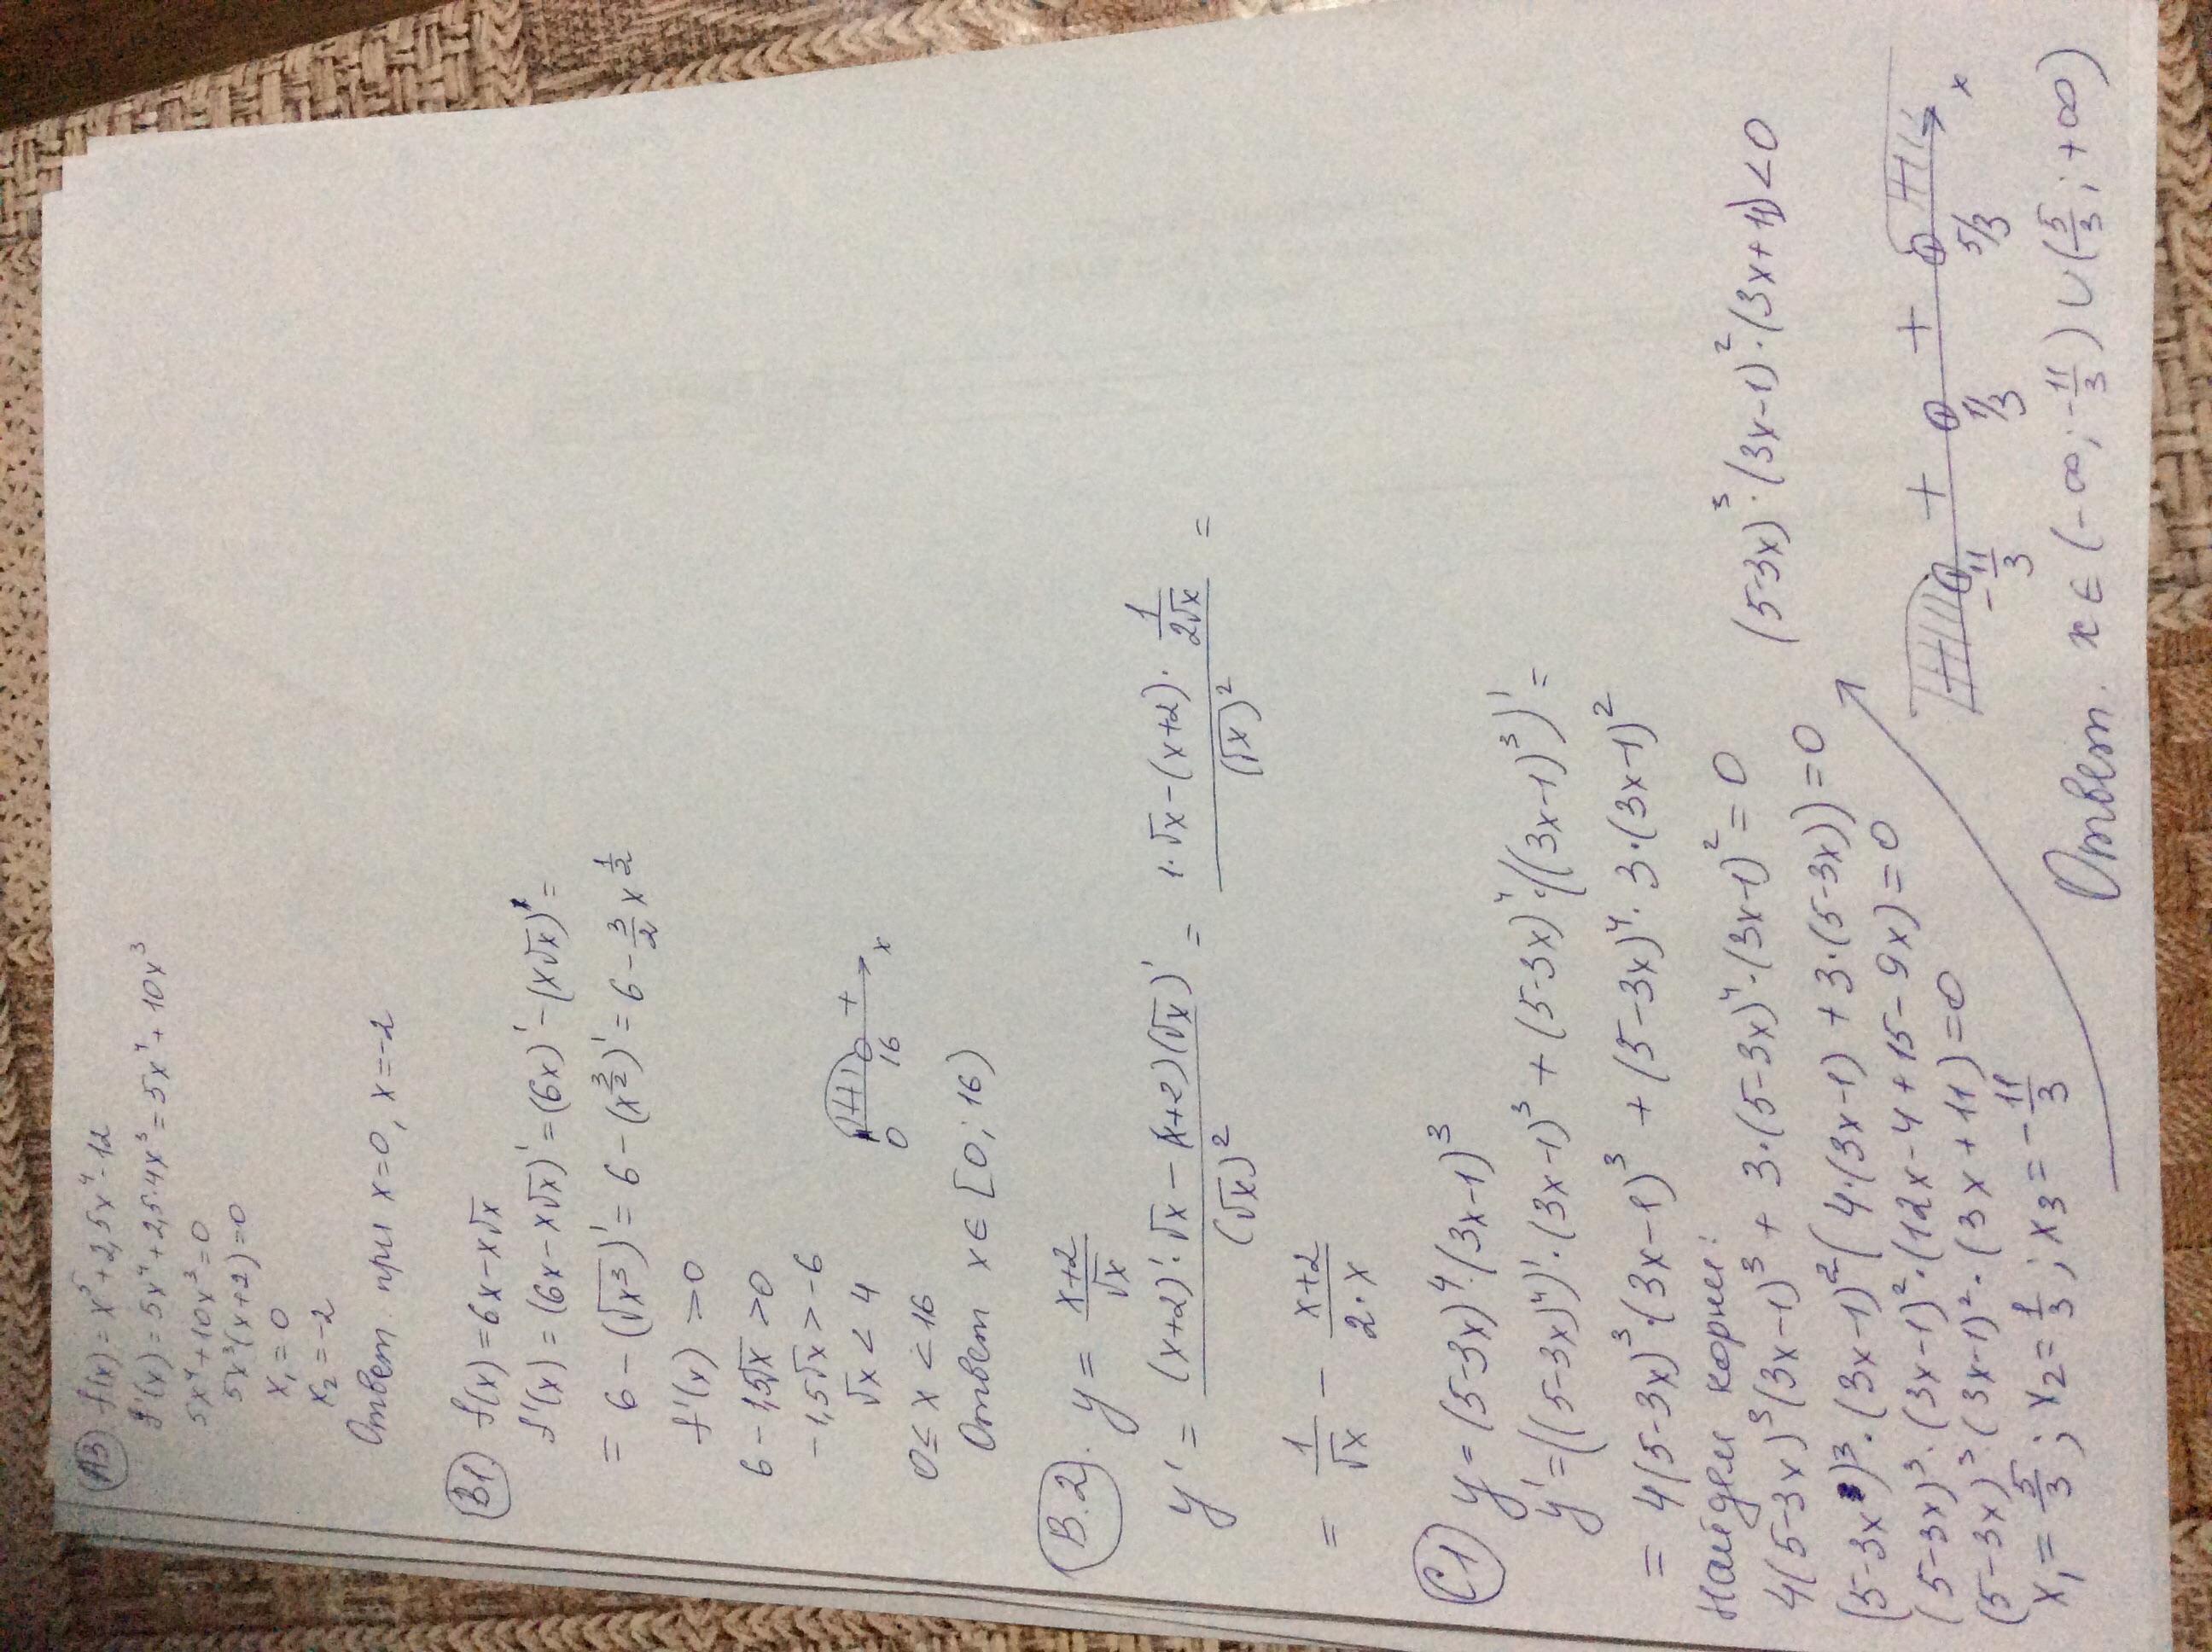 А3 f(x) = x⁵ + 2,5x⁴ - 12
f'(x) = 5x⁴ + 2,5·4x³ = 5x⁴ + 10x³
5x⁴ + 10x³ = 0
5x³(x+2) = 0
x₁ = 0
x₂ = -2
Ответ. при x = 0, x = -2
B1 f(x) = 6x - x√x
f'(x) = (6x - x√x)' = (6x)' - (x√x)' =
= 6 - (√x³)' = 6 - (x^(3/2))' = 6 - 3/2 x^(1/2)
f'(x) > 0
6 - 1,5√x > 0
-1,5√x > -6
√x < 4
0 16 + x
0 ≤ x < 16
Ответ x ∈ [0; 16)
B.2. y = (x+2)/√x
y' = ((x+2)'·√x - (x+2)(√x)')/(√x)² = (1·√x - (x+2)·1/(2√x))/(√x)² =
= 1/√x - (x+2)/(2·x)
C1 y = (5-3x)⁴·(3x-1)³
y' = ((5-3x)⁴)'·(3x-1)³ + (5-3x)⁴·((3x-1)³)' =
= 4(5-3x)³·(3x-1)³ + (5-3x)⁴·3·(3x-1)²
Найдем корни:
4(5-3x)³(3x-1)³ + 3·(5-3x)⁴·(3x-1)² = 0
(5-3x)³·(3x-1)²·(4·(3x-1) + 3·(5-3x)) = 0
(5-3x)³·(3x-1)²·(12x - 4 + 15 - 9x) = 0
(5-3x)³·(3x-1)²·(3x+11) = 0
x₁ = 5/3; x₂ = 1/3; x₃ = -11/3
(5-3x)³·(3x-1)²·(3x+11) < 0
+ +
-11/3 1/3 5/3 x
Ответ. x ∈ (-∞; -11/3) ∪ (5/3; +∞)